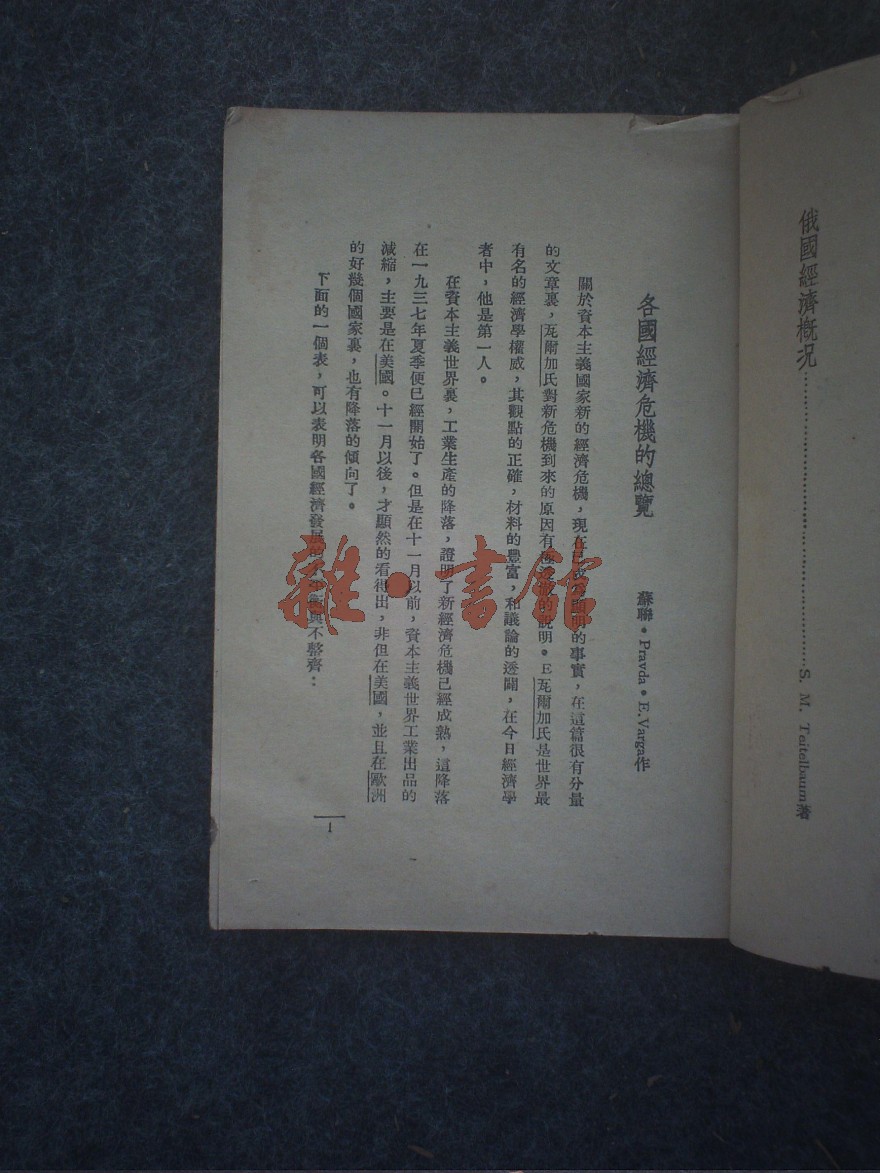 俄國經濟概況……………………………………S. M. Teitelbaum著
各國經濟危機的總覽
蘇聯・Pravda・E. Varga作
關於資本主義國家新的經濟危機，現在已成為的事實，在這篇很有分量
的文章裏，瓦爾加氏對新危機到來的原因有的說明。E瓦爾加氏是世界最
有名的經濟學權威，其觀點的正確，材料的豐富，和議論的透闢，在今日經濟學
者中，他是第一人。
在資本主義世界裏，工業生產的降落，證明了新經濟危機已經成熟，這降落
在一九三七年夏季便已經開始了。但是在十一月以前，資本主義世界工業出品的
減縮，主要是在美國。十一月以後，才顯然的看得出，非但在美國，並且在歐洲
的好幾個國家裏，也有降落的傾向了。
下面的一個表，可以表明各國經濟發展的不與不整齊：
1
雜・書館